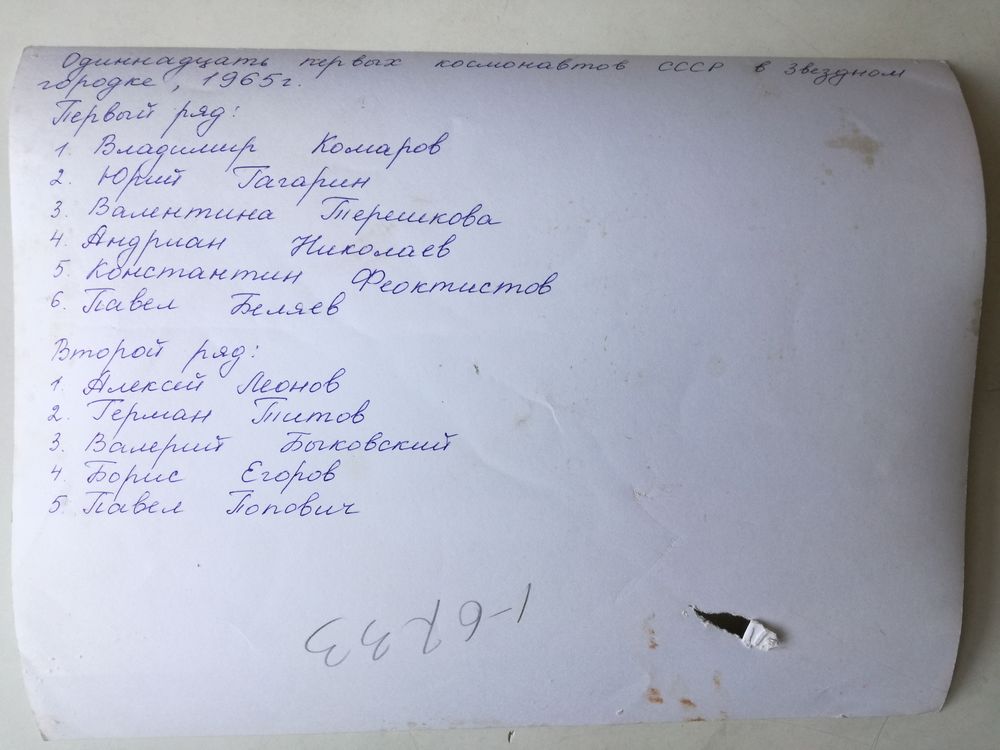 Одиннадцать первых космонавтов СССР в Звездном
городке, 1965г.
Первый ряд:
1. Владимир Комаров
2. Юрий Гагарин
3. Валентина Терешкова
4. Андриан Николаев
5. Константин Феоктистов
6. Павел Беляев
Второй ряд:
1. Алексей Леонов
2. Герман Титов
3. Валерий Быковский
4. Борис Егоров
5. Павел Попович